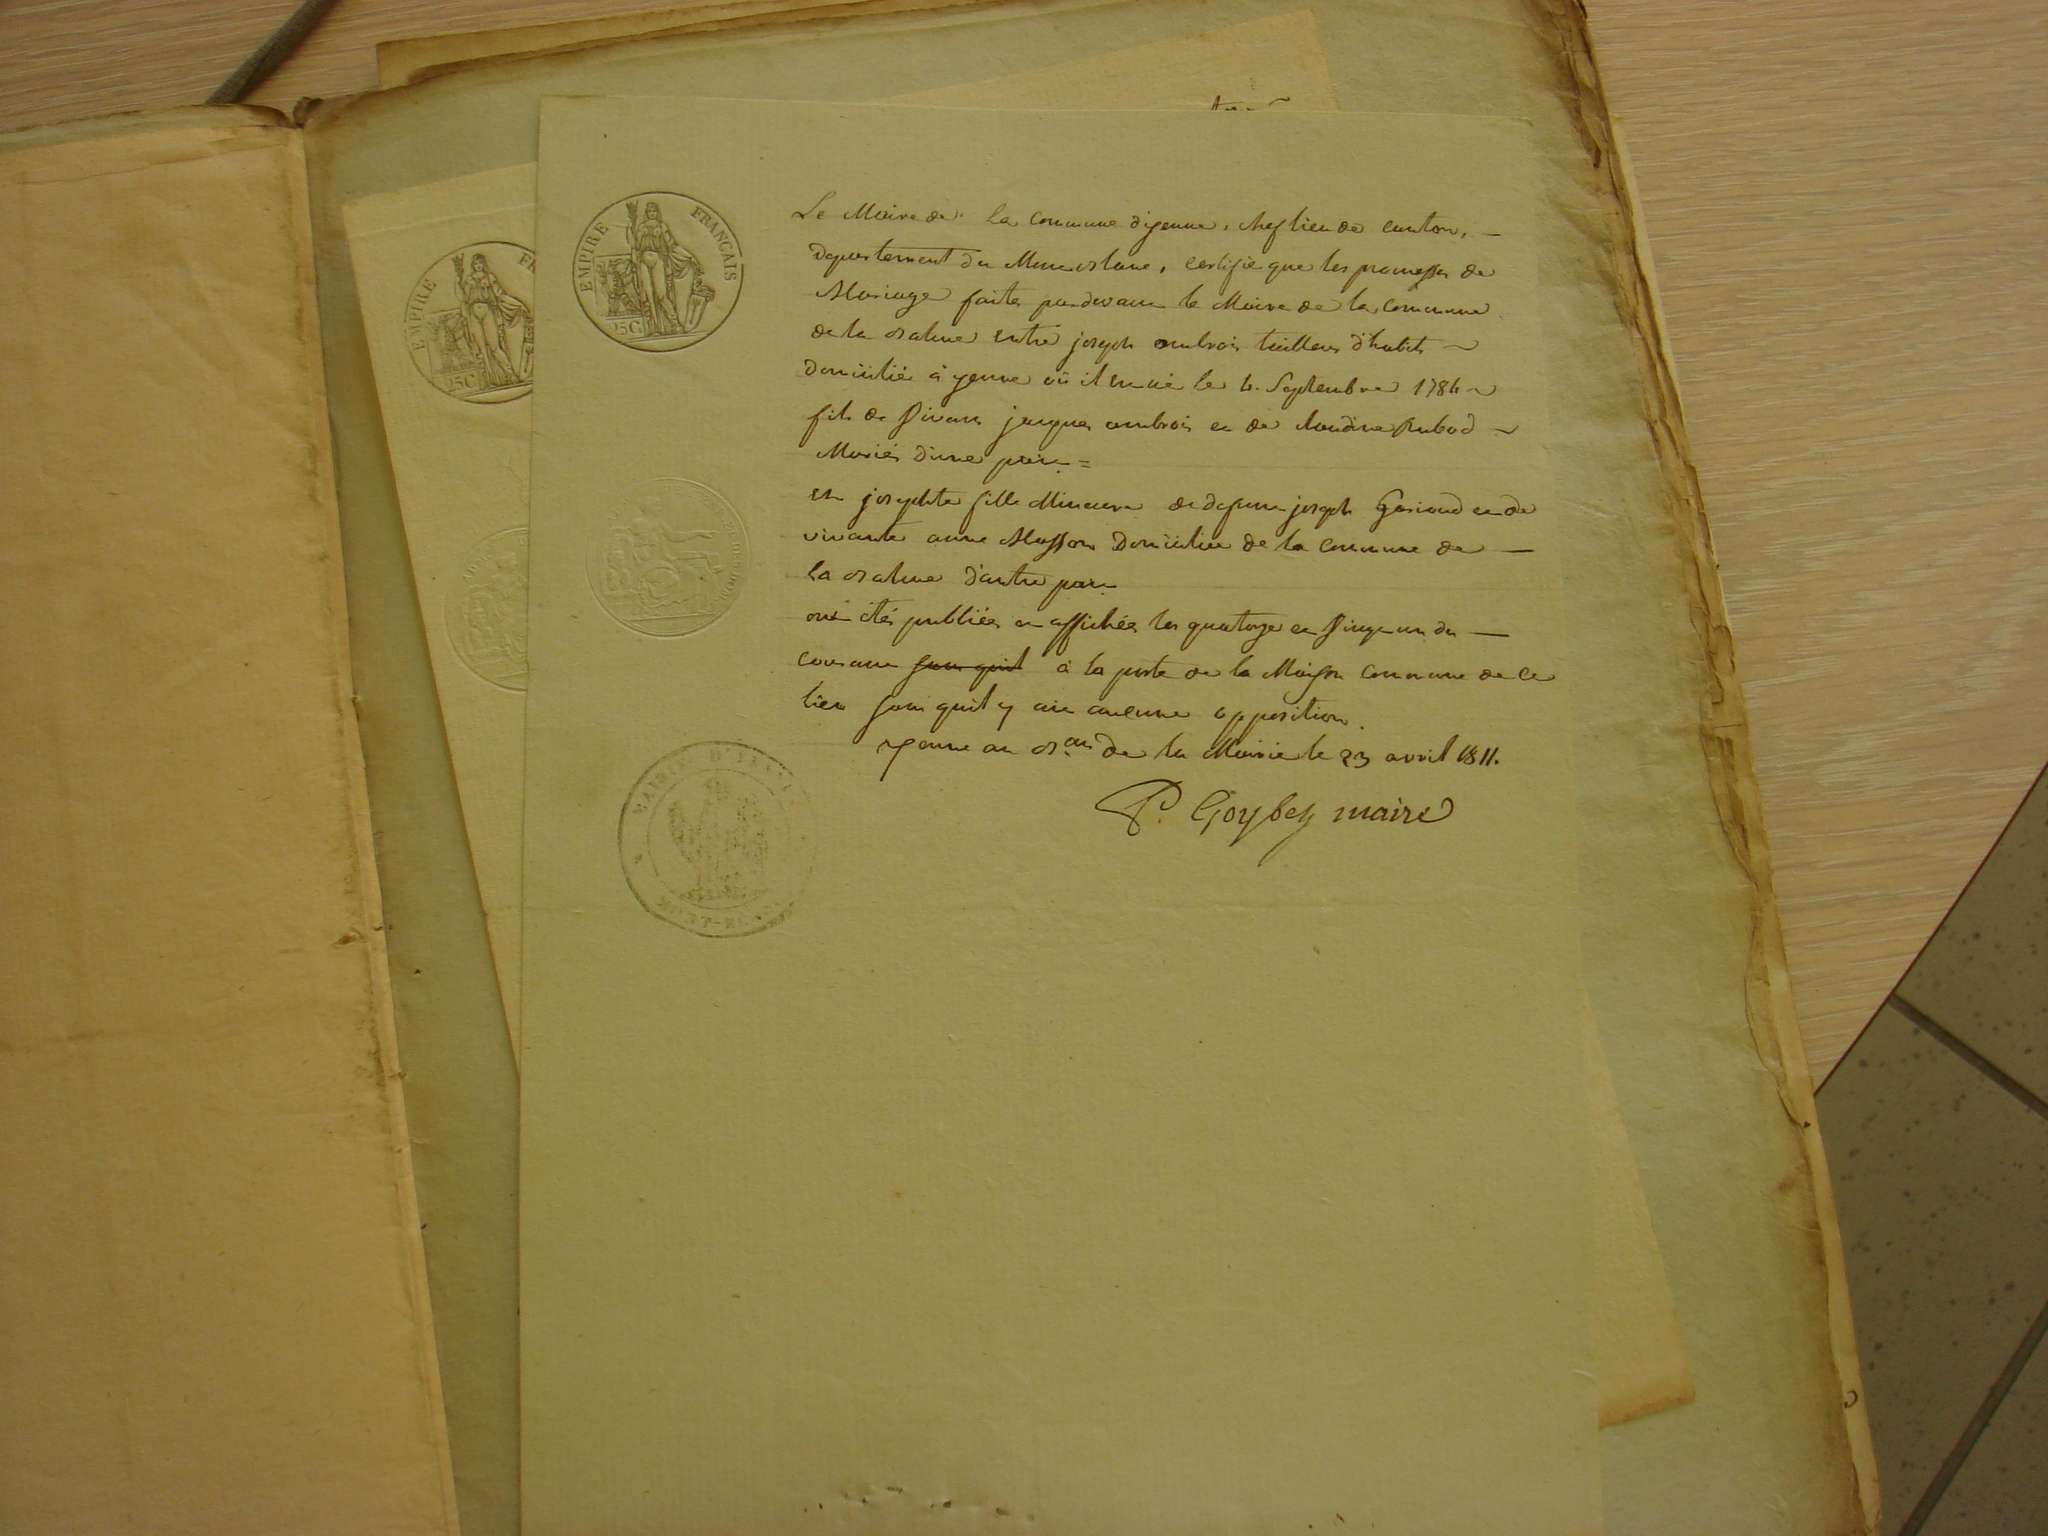 EMPIRE FRANÇAIS
25C
EMPIRE FR
25C
Le Maire de la Commune d'yenne, cheflieu de canton,
departement du Montblanc, certifie que les promesses de
Mariage faites pardevant le Maire de la Commune
de la balme entre joseph ambrois tailleur d'habits
domicilié à yenne où il est né le 4 Septembre 1784
fils de vivans jacques ambrois et de claudine Rubod
Mariés d'une part =
et josephte fille Mineure de defunt joseph Garioud et de
vivante anne Masson Domiciliée de la Commune de
la balme d'autre part
ont étés publiées et affichées les quatorze et vingt un du
courant sans quil à la porte de la Maison commune de ce
lieu sans quil y ait aucune opposition.
yenne au b.au de la Mairie le 23 avril 1811.
P. Goybet maire
MAIRIE D'YENNE
MONT-BLANC